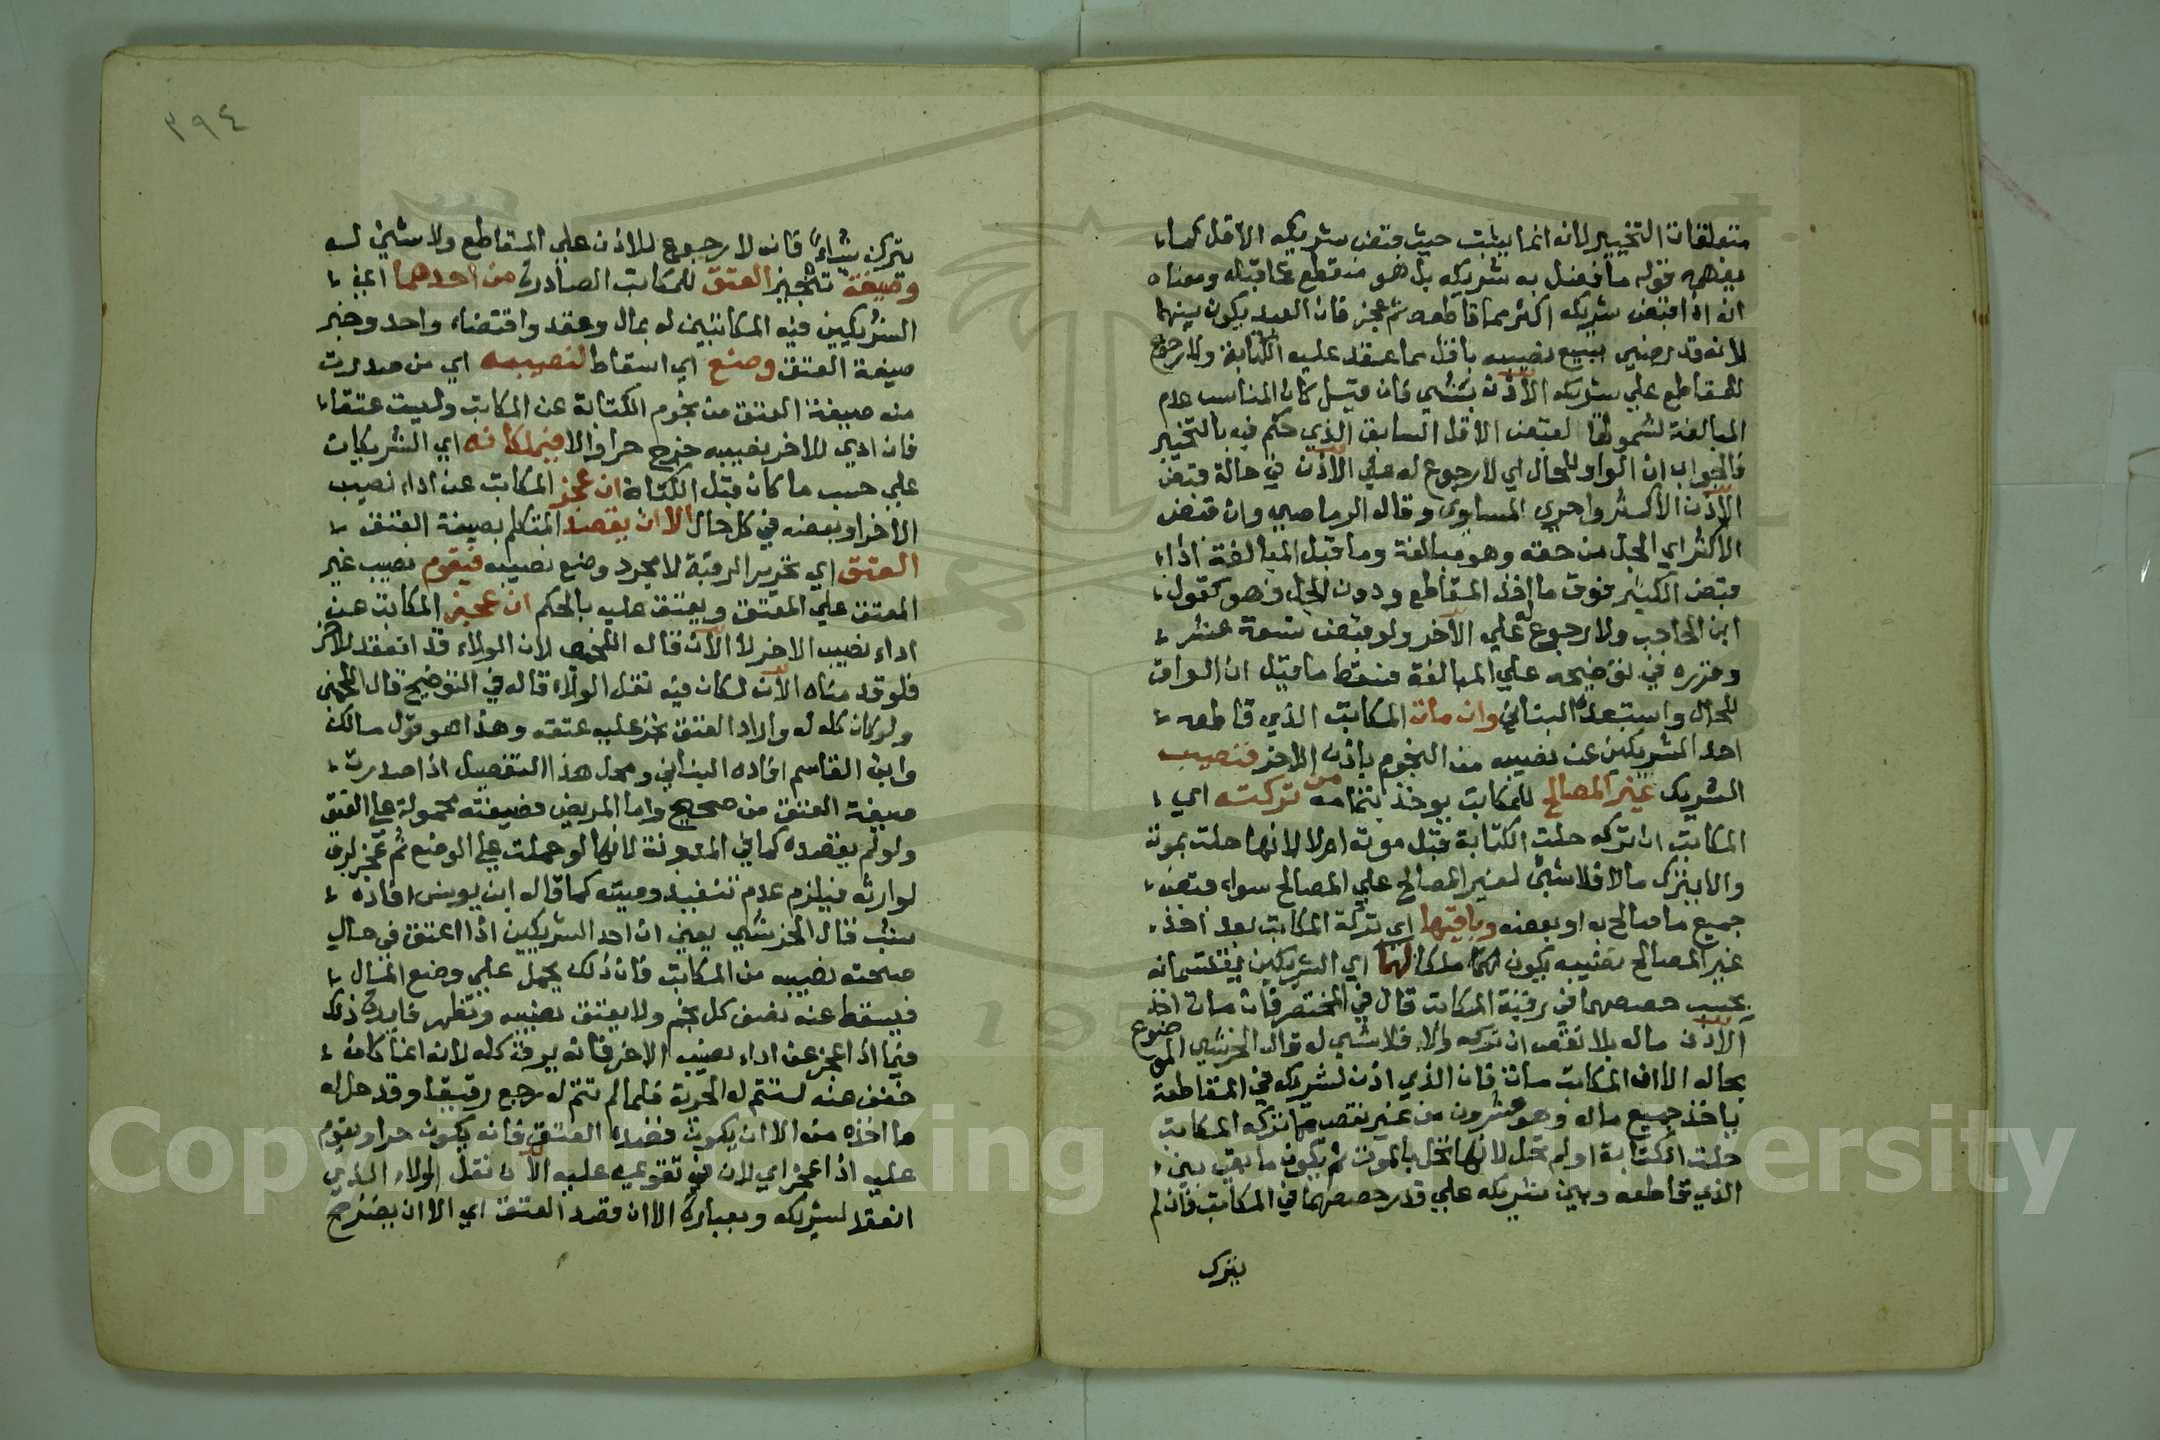 متعلقات التخيير لانه انما يثبت حيث قبض شريكه الاقل كما
يفهمه قوله ما فضل به شريكه بل هو منقطع عما قبله ومعناه
انه اذا قبض شريكه اكثر مما قاطعه ثم عجز فان العبد يكون بينهما
لانه قد رضي ببيع نصيبه باقل مما عقد عليه الكتابة ولا رجوع
للمقاطع علي شريكه الآذن بشي فان قيل كان المناسب عدم
المبالغة لشمولها لقبض الاقل السابق الذي حكم فيه بالتخيير
فالجواب ان الواو للحال اي لا رجوع له علي الآذن في حالة قبض
الآذن الاكثر واحري المساوي وقال الرماصي وان قبض
الاكثر اي الجل من حقه وهو مبالغة وما قبل المبالغة اذا
قبض الكثير فوق ما اخذ المقاطع ودون الجل فهو كقول
ابن الحاجب ولا رجوع له علي الآخر ولو قبض تسعة عشر
وقرره في توضيحه علي المبالغة فسقط ما قيل ان الواو
للحال واستبعده البناني وان مات المكاتب الذي قاطعه
احد الشريكين عن نصيبه من النجوم باذن الاخر فنصيب
الشريك غير المصالح للمكاتب يوخذ بتمامه من تركته اي
المكاتب ان تركه حلت الكتابة قبل موته ام لا لانها حلت بموته
والا يترك مالا فلا شي لغير المصالح علي المصالح سواء قبض
جميع ما صالح به او بعضه وباقيها اي تركة المكاتب بعد اخذ
غير المصالح نصيبه يكون ملكا لهما اي الشريكين يقتسمانه
بحسب حصصهما في رقبة المكاتب قال في المختصر فان مات اخذ
الآذن ماله بلا نقص ان تركه والا فلا شي له قال الخرشي الموضوع
بحاله الا ان المكاتب مات فان الذي اذن لشريكه في المقاطعة
ياخذ جميع ماله وهو عشرون من غير نقص مما تركه المكاتب
حلت الكتابة او لم تحل لانها تحل بالموت ثم يكون ما بقي بين
الذي قاطعه وبين شريكه علي قدر حصصهما في المكاتب فان لم
يترك
٣٩٤
يترك شيأ فانه لا رجوع للاذن علي المقاطع ولا شي له
وصيغة تنجيز العتق للمكاتب الصادرة من احدهما اي
الشريكين فيه المكاتبين له بمال وعقد واقتضاء واحد وخبر
صيغة العتق وضع اي اسقاط لنصيبه اي من صدرت
منه صيغة العتق من نجوم الكتابة عن المكاتب وليست عتقا
فان ادي للاخر نصيبه خرج حرا والا فيملكانه اي الشريكان
علي حسب ما كان قبل الكتابة ان عجز المكاتب عن اداء نصيب
الآخر او بعضه في كل حال الا ان يقصد المتكلم بصيغة العتق
العتق اي تحرير الرقبة لا مجرد وضع نصيبه فيقوم نصيب غير
المعتق علي المعتق ويعتق عليه بالحكم ان عجز المكاتب عن
اداء نصيب الاخر لا الآن قاله اللخمي لان الولاء قد انعقد للاخر
فلو قومناه الآن لكان فيه نقل الولاء قاله في التوضيح قال اللخمي
ولو كان كله له واراد العتق نجز عليه عتقه وهذا هو قول مالك
وابن القاسم افاده البناني ومحل هذا التفصيل اذا صدرت
صيغة العتق من صحيح واما المريض فصيغته محمولة علي العتق
ولو لم يقصده كما في المدونة لانها لو حملت علي الوضع ثم عجز لرق
لوارثه فيلزم عدم تنفيذ وصيته كما قاله ابن يونس افاده
شب قال الخرشي يعني ان احد الشريكين اذا اعتق في حال
صحته نصيبه من المكاتب فان ذلك يحمل علي وضع المال
فيسقط عنه نصف كل نجم ولا يعتق نصيبه وتظهر فايدة ذلك
فيما اذا عجز عن اداء نصيب الاخر فانه يرق كله لانه انما كان
خفف عنه لتتم له الحرية فلما لم تتم له رجع رقيقا وقد حل له
ما اخذه منه الا ان يكون قصده العتق فانه يكون حرا ويقوم
عليه اذا عجز اي لان في تقويمه عليه الآن نقل الولاء الذي
انعقد لشريكه وبعبارة الا ان قصد العتق اي الا ان يصرح